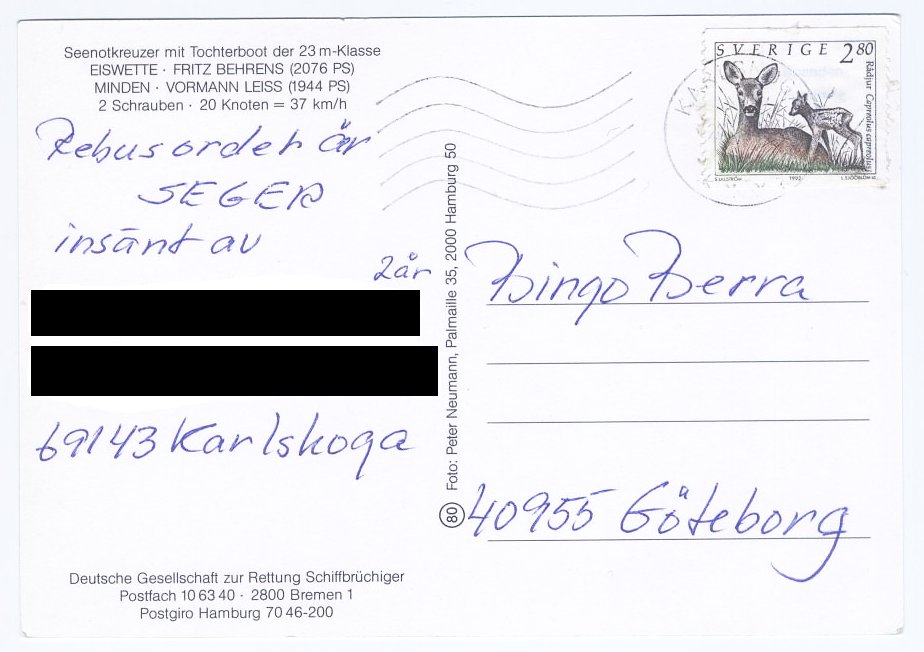 Seenotkreuzer mit Tochterboot der 23 m-Klasse
EISWETTE · FRITZ BEHRENS (2076 PS)
MINDEN · VORMANN LEISS (1944 PS)
2 Schrauben · 20 Knoten = 37 km/h
Rebusordet är
SEGER
insänt av
2år
69143 Karlskoga
Deutsche Gesellschaft zur Rettung Schiffbrüchiger
Postfach 10 63 40 · 2800 Bremen 1
Postgiro Hamburg 70 46-200
80 Foto: Peter Neumann, Palmaille 35, 2000 Hamburg 50
SVERIGE 2 80
Rådjur Capreolus capreolus
1992
Bingo Berra
40955 Göteborg